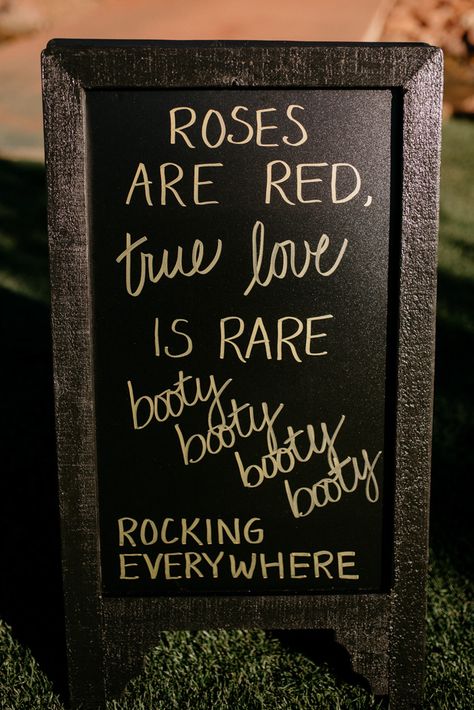 ROSES
ARE RED,
true love
IS RARE
booty
booty
booty
booty
ROCKING
EVERYWHERE